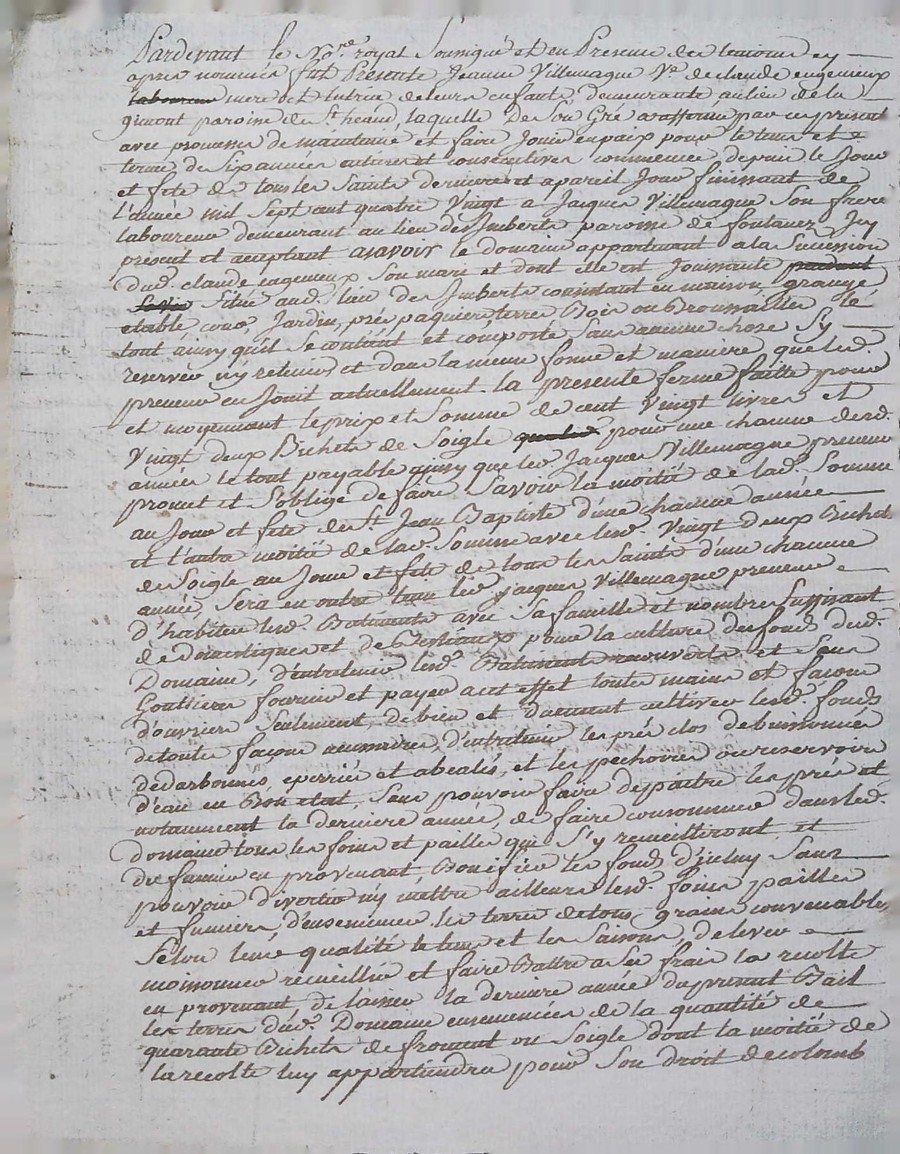 Pardevant le No.re royal Soussigné et en Presence des temoins cy
apres nommés fut Presente Jeanne Villemagne Ve de claude eugenieux
laboureur mere et tutrice de leurs enfants demeurante au lieu de la
gimont paroisse de St heand, laquelle De Son Gré a affermé par ces presentes
avec promesses de maintenir et faire Jouir en paix pour le tems et
terme de Six années entieres et consecutives commencée depuis le Jour
et fete de tous les Saints derniere et a pareil Jour finissant de
l'année mil Sept cent quatre Vingt a Jacques Villemagne Son frere
laboureur demeurant au lieu des Imberts paroisse de fontanez Icy
present et acceptant asavoir le domaine appartenant a la Succession
dud. claude eugenieux Son mari et dont elle est Jouissante pendant
Sa vie Situé aud. lieu des Imberts consistant en maison, grange
etable cour Jardin, prés paquiers terres Bois ou Broussailles le
tout ainsy qu'il Se contient et comporte Sans aucune chose Sy
reserver ny retenir et dans la meme forme et maniere que led.
preneur en Jouit actuellement. la presente ferme faitte pour
et moyennant le prix et Somme de cent Vingt livres et
Vingt deux Bichets de Soigle pour une chacune desd.
années le tout payable ainsy que led. Jacques Villemagne preneur
promet et S'oblige de faire Savoir la moitié de lad. Somme
au Jour et fete de St Jean Baptiste d'une chacune année
et l'autre moitié de lad. Somme avec lesd. Vingt deux Bichets
de Soigle au Jour et fete de tous les Saints d'une chacune
année, Sera en outre tenu led. jacques Villemagne preneur
d'habiter lesd. Batiments avec Sa famille et nombre Suffisant
de domestiques et de Bestiaux pour la culture des fonds dud.
Domaine, d'entretenir lesd. Batiments recouverts et Sans
Gouttieres fournir et payer a cet effet toutes mains et facons
d'ouvriers Seulement, de bien et dument cultiver lesd. fonds
de toutte façon d'entretenir les prés clos debuissonnés
dedarbonnés, eperriés et abealés, et les pechoires ou reservoirs
d'eau en Bon etat, Sans pouvoir faire depaitre les prés et
notamment la derniere année, de faire consommer dans led.
domaine tous les foins et pailles qui S'y recueilleront et
du fumier en provenant Bonifier les fonds d'icluy Sans
pouvoir divertir ny mettre ailleurs lesd. foins pailles
et fumiers d'ensemencer les terres de tous grains convenables
Selon leur qualité le tems et les Saisons, de lever
moissonner recueillir et faire Battre a Ses frais la recolte
en provenant de laisser la derniere année du present Bail
les terres dud. Domaine ensemencées de la quantité de
quarante Bichets de froment ou Soigle dont la moitié de
la recolte luy appartiendra pour Son droit de colomb